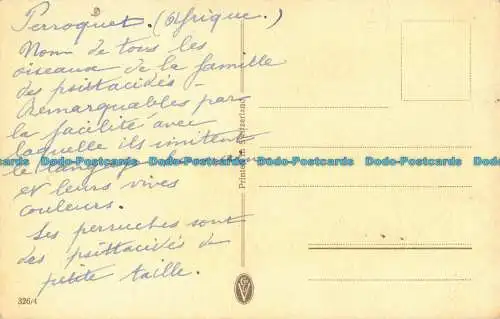 Perroquet. (Afrique.)
Nom de tous les
oiseaux de la famille
des psittacidés -
Remarquables par
la facilité avec
laquelle ils imitent
le langage
et leurs vives
couleurs.
Les perruches sont
des psittacidés de
petite taille.
326/4
Printed in Switzerland
Dodo-Postcards Dodo-Postcards Dodo-Postcards Dodo-Postcards Dodo-Postcards